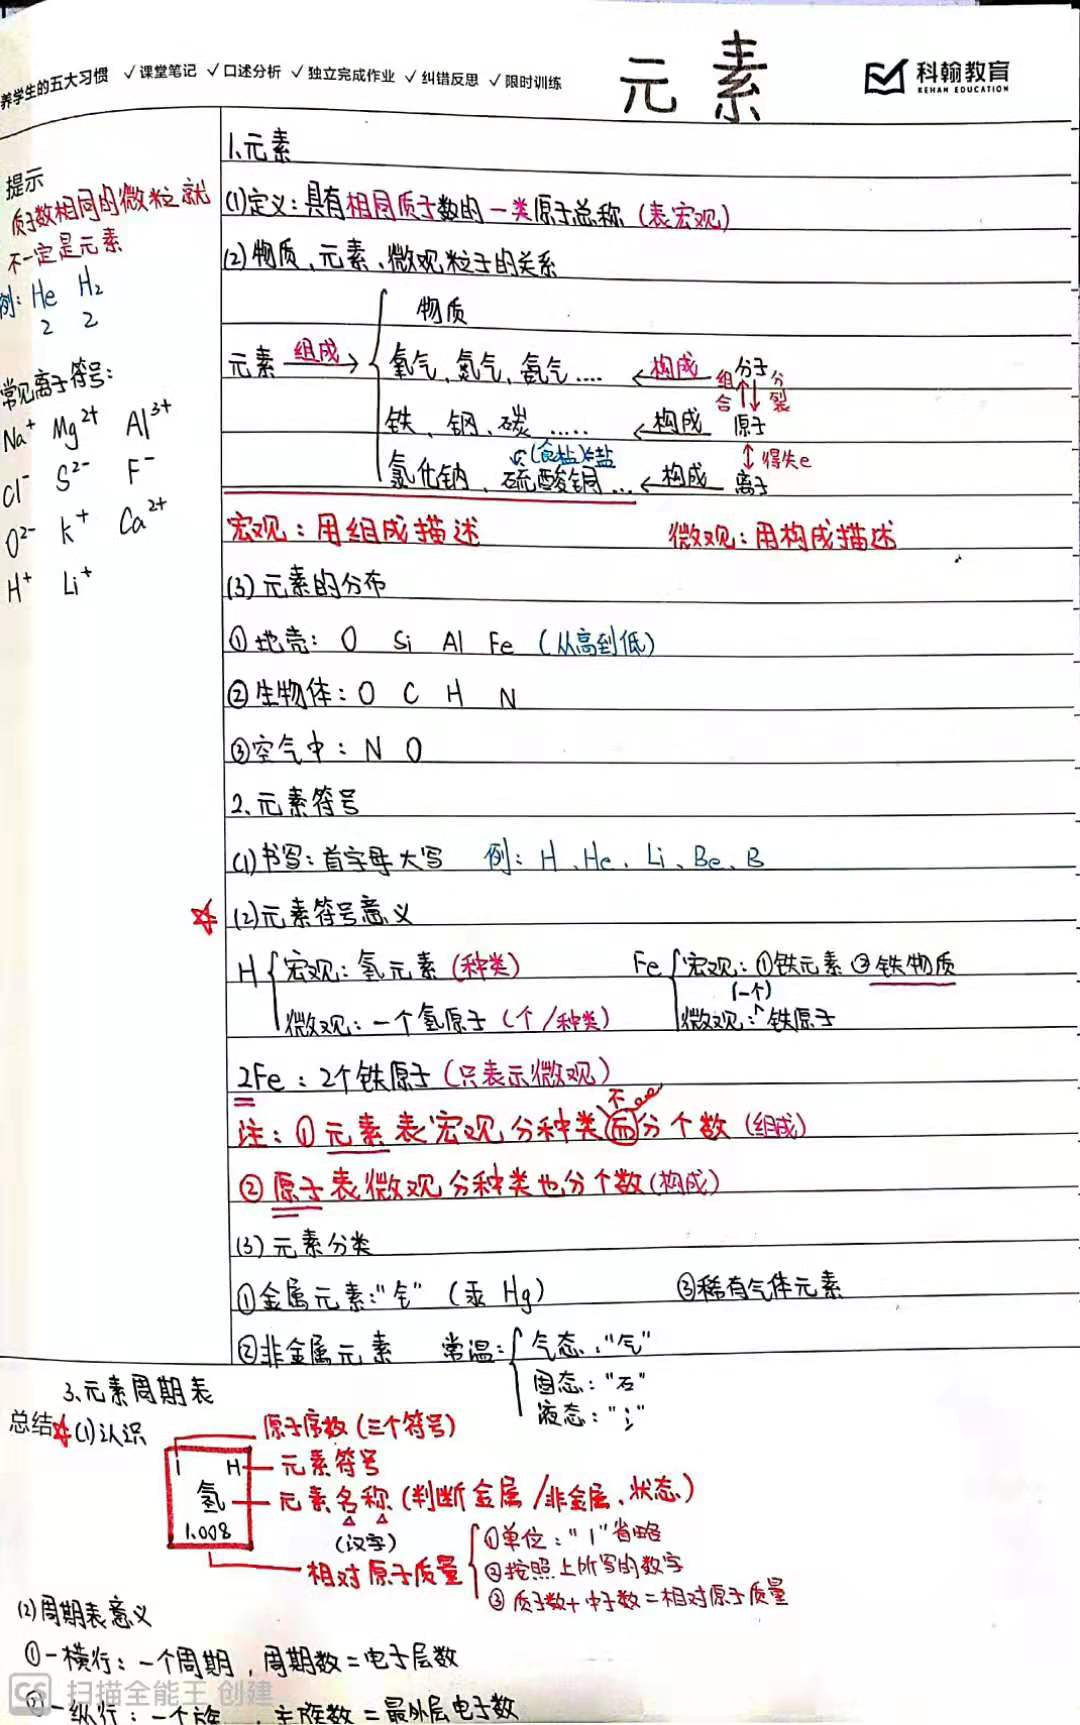 养学生的五大习惯 ✓课堂笔记 ✓口述分析 ✓独立完成作业 ✓纠错反思 ✓限时训练
元 素
科翰教育
KEHAN EDUCATION
提示
质子数相同的微粒就
不一定是元素
例: He H₂
2 2
常见离子符号:
Na⁺ Mg²⁺ Al³⁺
Cl⁻ S²⁻ F⁻
O²⁻ K⁺ Ca²⁺
H⁺ Li⁺
1.元素
(1)定义:具有相同质子数的一类原子总称(表宏观)
(2)物质、元素、微观粒子的关系
物质
元素 组成→ 氧气、氮气、氦气.... ←构成 分子
组合 ↑↓ 分裂
铁、铜、碳..... ←构成 原子
↕得失e
(食盐)盐
氯化钠、硫酸铜... ←构成 离子
宏观:用组成描述 微观:用构成描述
(3)元素的分布
①地壳: O Si Al Fe (从高到低)
②生物体: O C H N
③空气中: N O
2.元素符号
(1)书写:首字母大写 例: H、He、Li、Be、B
☆(2)元素符号意义
H 宏观:氢元素(种类) Fe 宏观:①铁元素②铁物质
(一个)
微观:一个氢原子(个/种类) 微观:铁原子
2Fe:2个铁原子(只表示微观)
不
注:①元素表宏观分种类而分个数(组成)
②原子表微观分种类也分个数(构成)
(3)元素分类
①金属元素:"钅"(汞 Hg) ③稀有气体元素
②非金属元素 常温: 气态:"气"
固态:"石"
液态:"氵"
3.元素周期表
总结☆(1)认识
原子序数(三个符号)
1 H 元素符号
氢 元素名称(判断金属/非金属、状态)
(汉字)
1.008
相对原子质量 ①单位:"1"省略
②按照上所写的数字
③质子数+中子数=相对原子质量
(2)周期表意义
①一横行:一个周期,周期数=电子层数
②一纵行:一个族,主族数=最外层电子数
CS 扫描全能王 创建